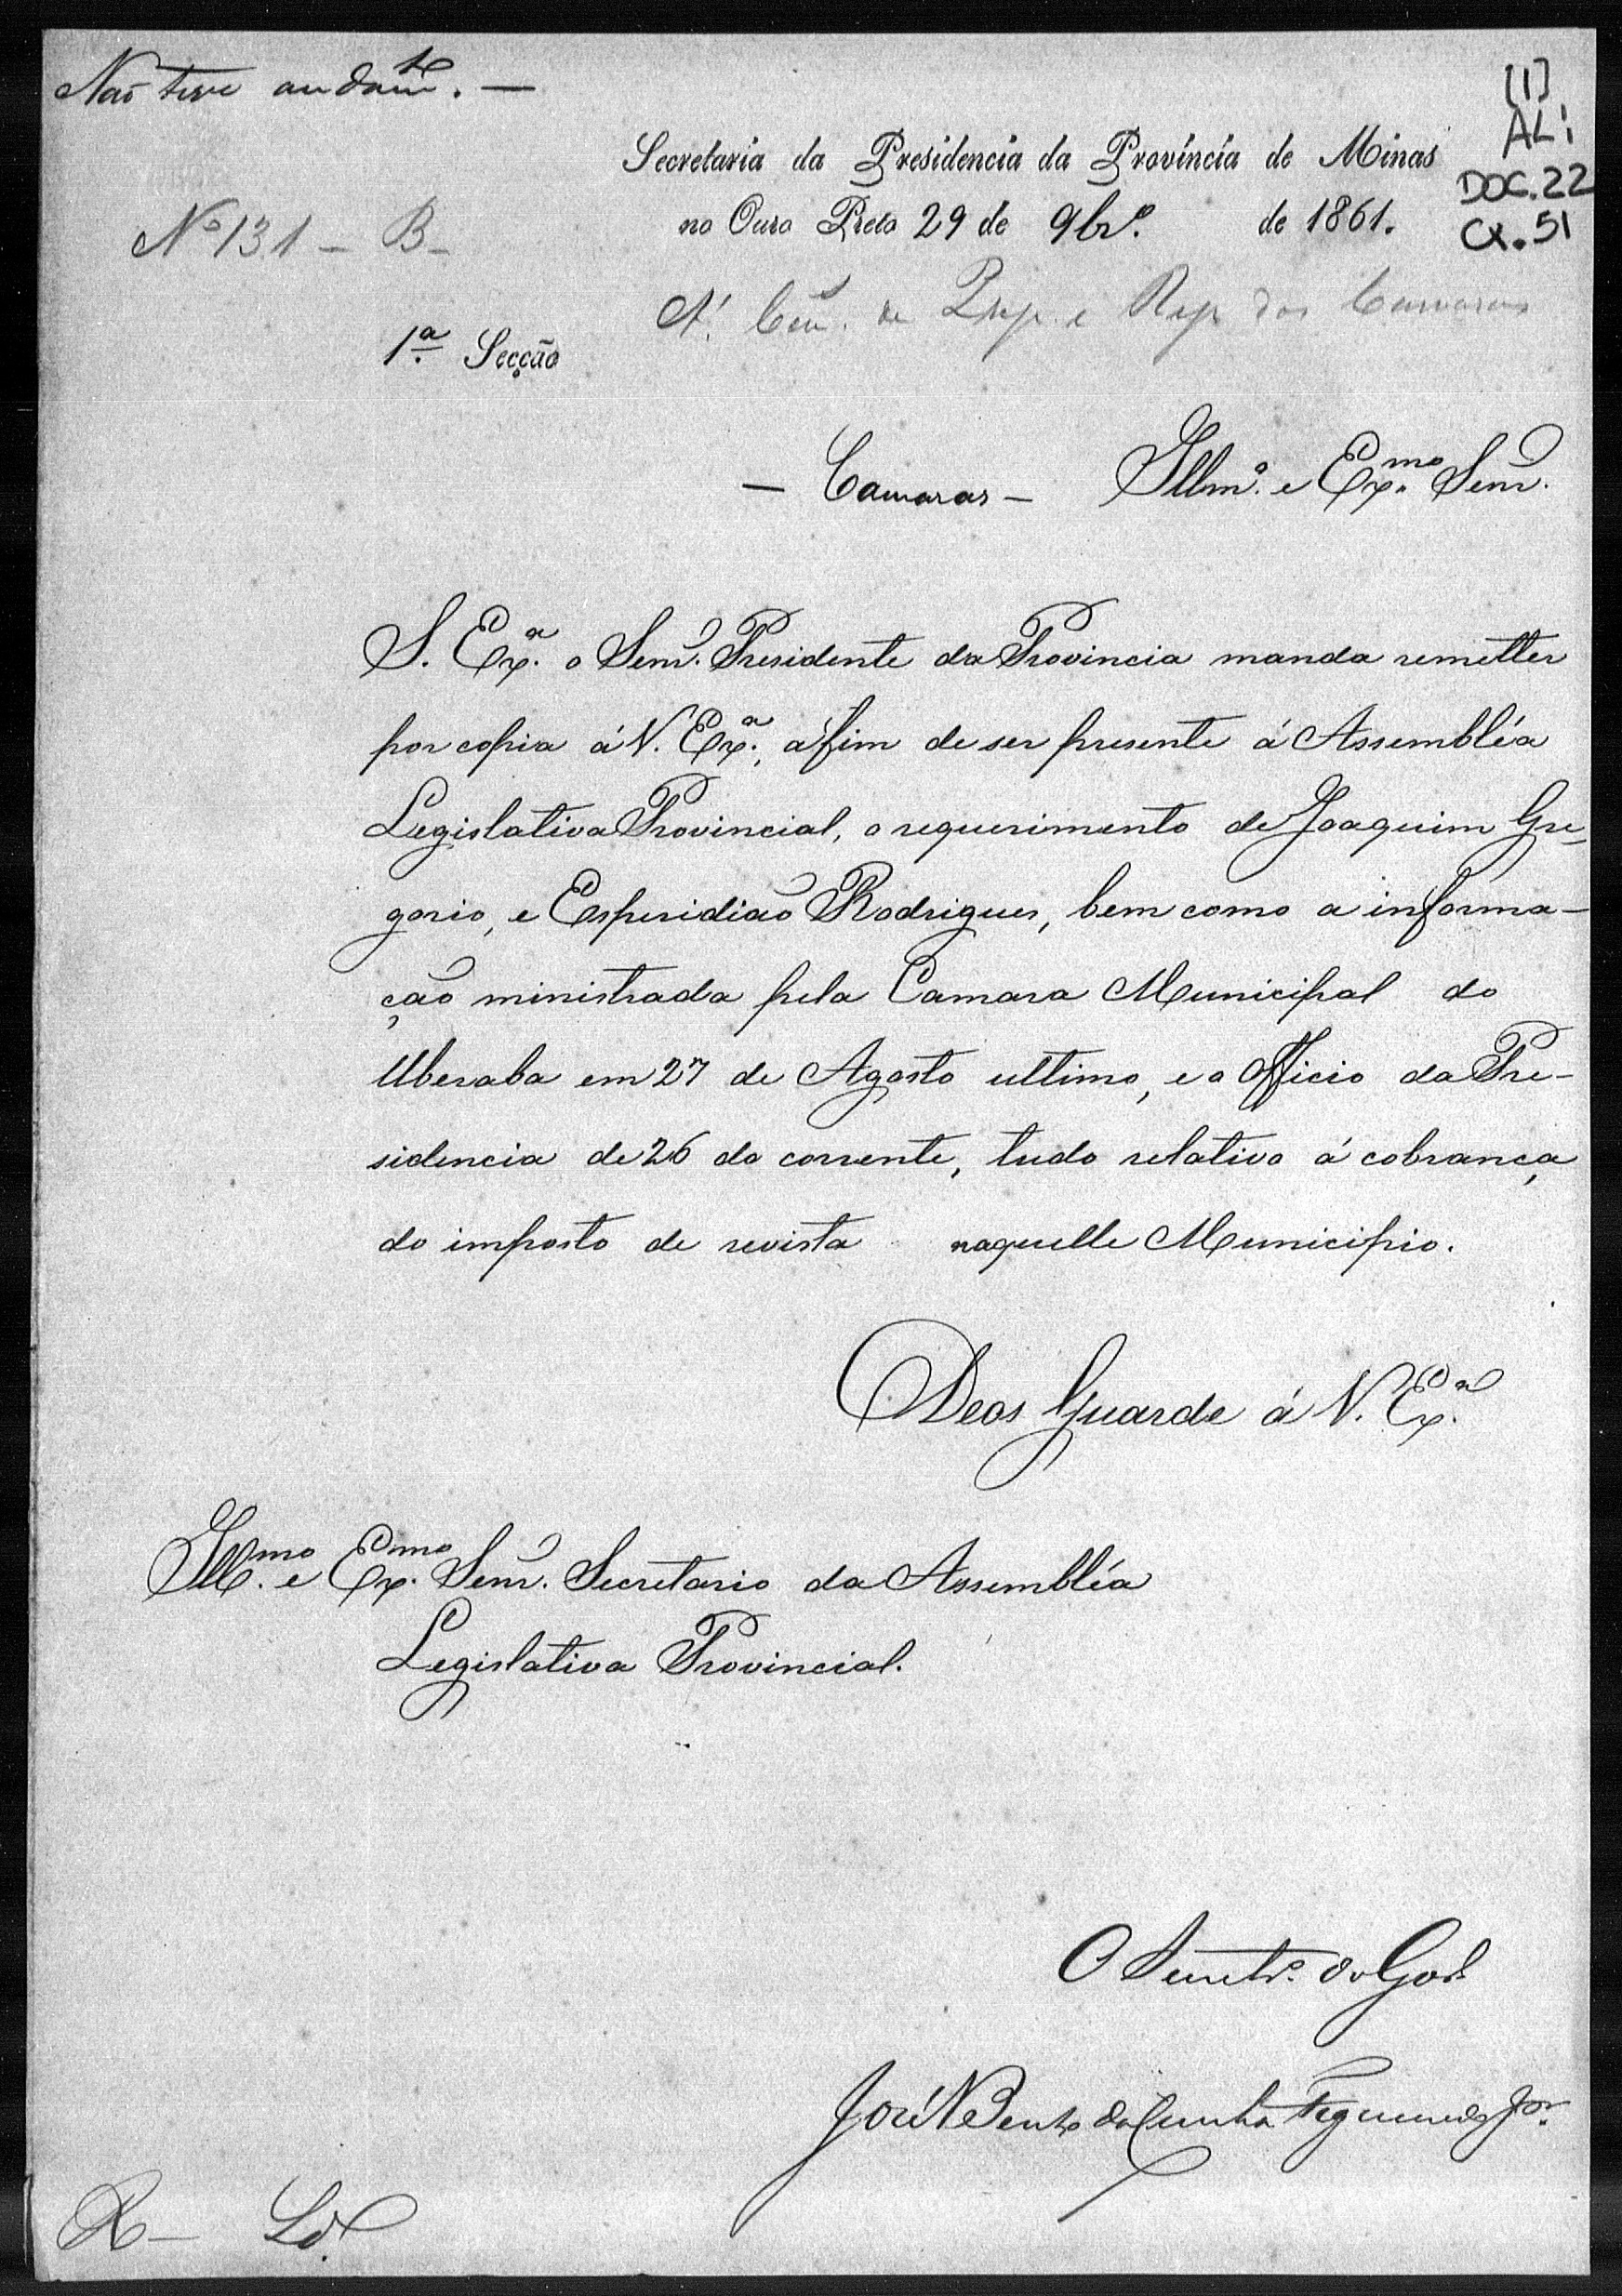 Não teve andam.to —
[1]
ALP
DOC. 22
CX. 51
Secretaria da Presidencia da Provincia de Minas
no Ouro Preto 29 de 9br.º de 1861.
Nº 131 – B –
A' Com. de Prop. e Rep. das Camaras
1.ª Secção
— Camaras — Illm.º e Ex.mo Senr.
S. Ex.ª o Senr. Presidente da Provincia manda remetter
por copia á V. Ex.ª, a'fim de ser presente á Assembléa
Legislativa Provincial, o requerimento de Joaquim Gre-
gorio, e Esperidião Rodrigues, bem como a informa-
ção ministrada pela Camara Municipal do
Uberaba em 27 de Agosto ultimo, e o Officio da Pre-
sidencia de 26 do corrente, tudo relativo á cobrança
do imposto de revista naquelle Municipio.
Deos Guarde á V. Ex.ª
Ill.mo e Ex.mo Senr. Secretario da Assembléa
Legislativa Provincial.
O Secretr.º do Gov.
José Bento da Cunha Figueiredo Jor.